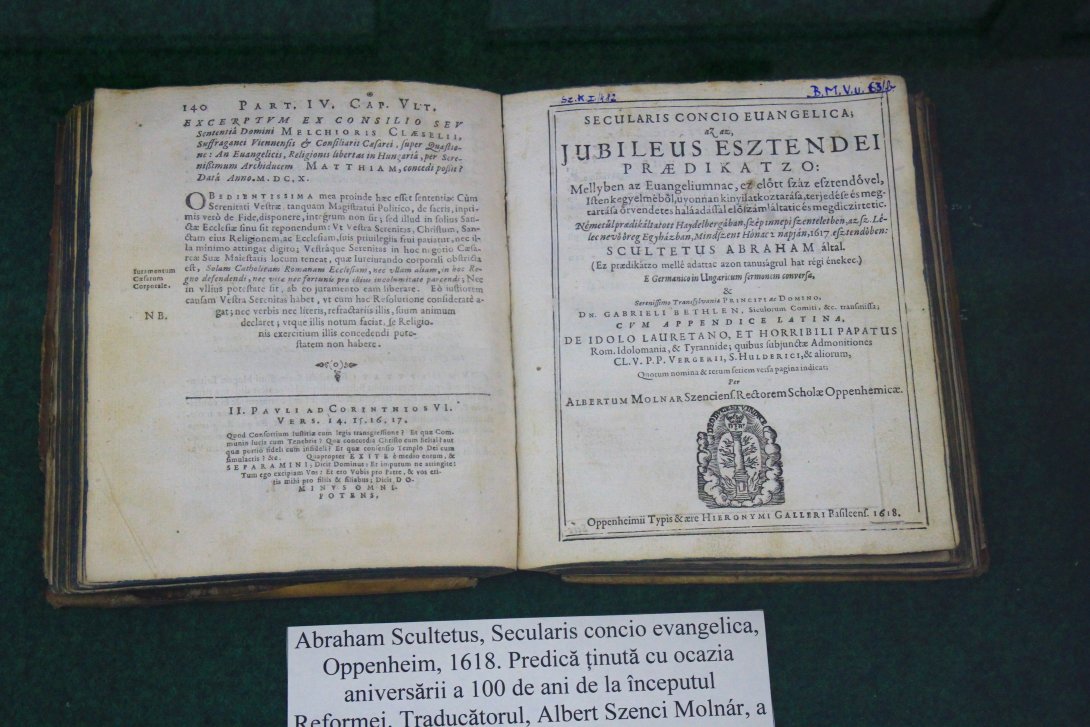 140 PART. IV. CAP. VLT.
EXCERPTVM EX CONSILIO SEV
Sententiâ Domini MELCHIORIS CLÆSELII,
Suffraganei Viennensis & Consiliarii Cæsarei, super Quæstio-
ne: An Euangelicis, Religionis libertas in Hungariâ, per Sere-
nissimum Archiducem MATTHIAM, concedi possit?
Datâ Anno. M. DC. X.
OBEDIENTISSIMA mea proinde hæc esset sententia: Cùm
Serenitati Vestræ, tanquam Magistratui Politico, de sacris, inpri-
mis verò de Fide, disponere, integrum non sit; sed illud in solius San-
ctæ Ecclesiæ sinu sit reponendum: Vt Vestra Serenitas, Christum, San-
ctam eius Religionem, ac Ecclesiam, suis privilegiis frui patiatur, nec il-
la minimo attingat digito; Vestráque Serenitas in hoc negotio Cæsa-
reæ Suæ Maiestatis locum teneat, quæ Iureiurando corporali obstricta
est, Solam Catholicam Romanam Ecclesiam, nec ullam aliam, in hoc Re-
gno defendendi, nec vitæ nec fortunis pro illius incolumitate parcendi; Nec
in vllius potestate sit, ab eo juramento eam liberare. Eò iustiorem
causam Vestra Serenitas habet, vt cum hac Resolutione consideratè a-
gat; nec verbis nec literis, refractariis illis, suum animum
declaret; vtque illis notum faciat, se Religio-
nis exercitium illis concedendi pote-
statem non habere.
Iuramentum
Cæsarum
Corporale.
NB.
II. PAVLI AD CORINTHIOS VI.
VERS. 14. 15. 16. 17.
Quod Consortium Iustitiæ cum legis transgressione? Et quæ Com-
munio lucis cum Tenebris? Quæ concordia Christo cum Belial? aut
quæ portio fideli cum infideli? Et quæ consensio Templo Dei cum
simulacris? &c. Quapropter EXITE è medio eorum, &
SEPARAMINI, Dicit Dominus: Et impurum ne attingite:
Tum ego excipiam Vos: Et ero Vobis pro Patre, & vos eri-
tis mihi pro filiis & filiabus; Dicit DO-
MINVS OMNI-
POTENS,
B.M.V.u.
SECULARIS CONCIO EUANGELICA;
az az,
JUBILEUS ESZTENDEI
PRÆDIKATZO:
Mellyben az Euangeliumnac, ez elött száz esztendővel,
Isten kegyelméből, ùvonnan kinyilatkoztatása, terjedése és meg-
tartása örvendetes halaádással elöszámláltatic és megdiczirtetic.
Németül prædikáltatott Haydelbergában, szép innepi szenteletben, az sz. Lé-
lec nevö öreg Egyházban, Mindszent Hónac 2 napján, 1617. esztendöben:
SCULTETUS ABRAHAM által.
(Ez prædikátzo mellé adattac azon tanuságrul hat régi énekec.)
E Germanico in Ungaricum sermonem conversa,
&
Serenissimo Transylvaniæ PRINCIPI ac DOMINO,
DN. GABRIELI BETHLEN, Siculorum Comiti, &c. transmissa;
CVM APPENDICE LATINA,
DE IDOLO LAURETANO, ET HORRIBILI PAPATUS
Rom. Idolomania, & Tyrannide; quibus subjunctæ Admonitiones
CL. V. P. P. VERGERII, S. HULDERICI, & aliorum,
Quorum nomina & rerum seriem versa pagina indicat:
Per
ALBERTUM MOLNAR Szenciens. Rectorem Scholæ Oppenhemicæ.
Oppenheimii Typis & ære HIERONYMI GALLERI Basileens. 1618.
Abraham Scultetus, Secularis concio evangelica,
Oppenheim, 1618. Predică ținută cu ocazia
aniversării a 100 de ani de la începutul
Reformei. Traducătorul, Albert Szenci Molnár, a